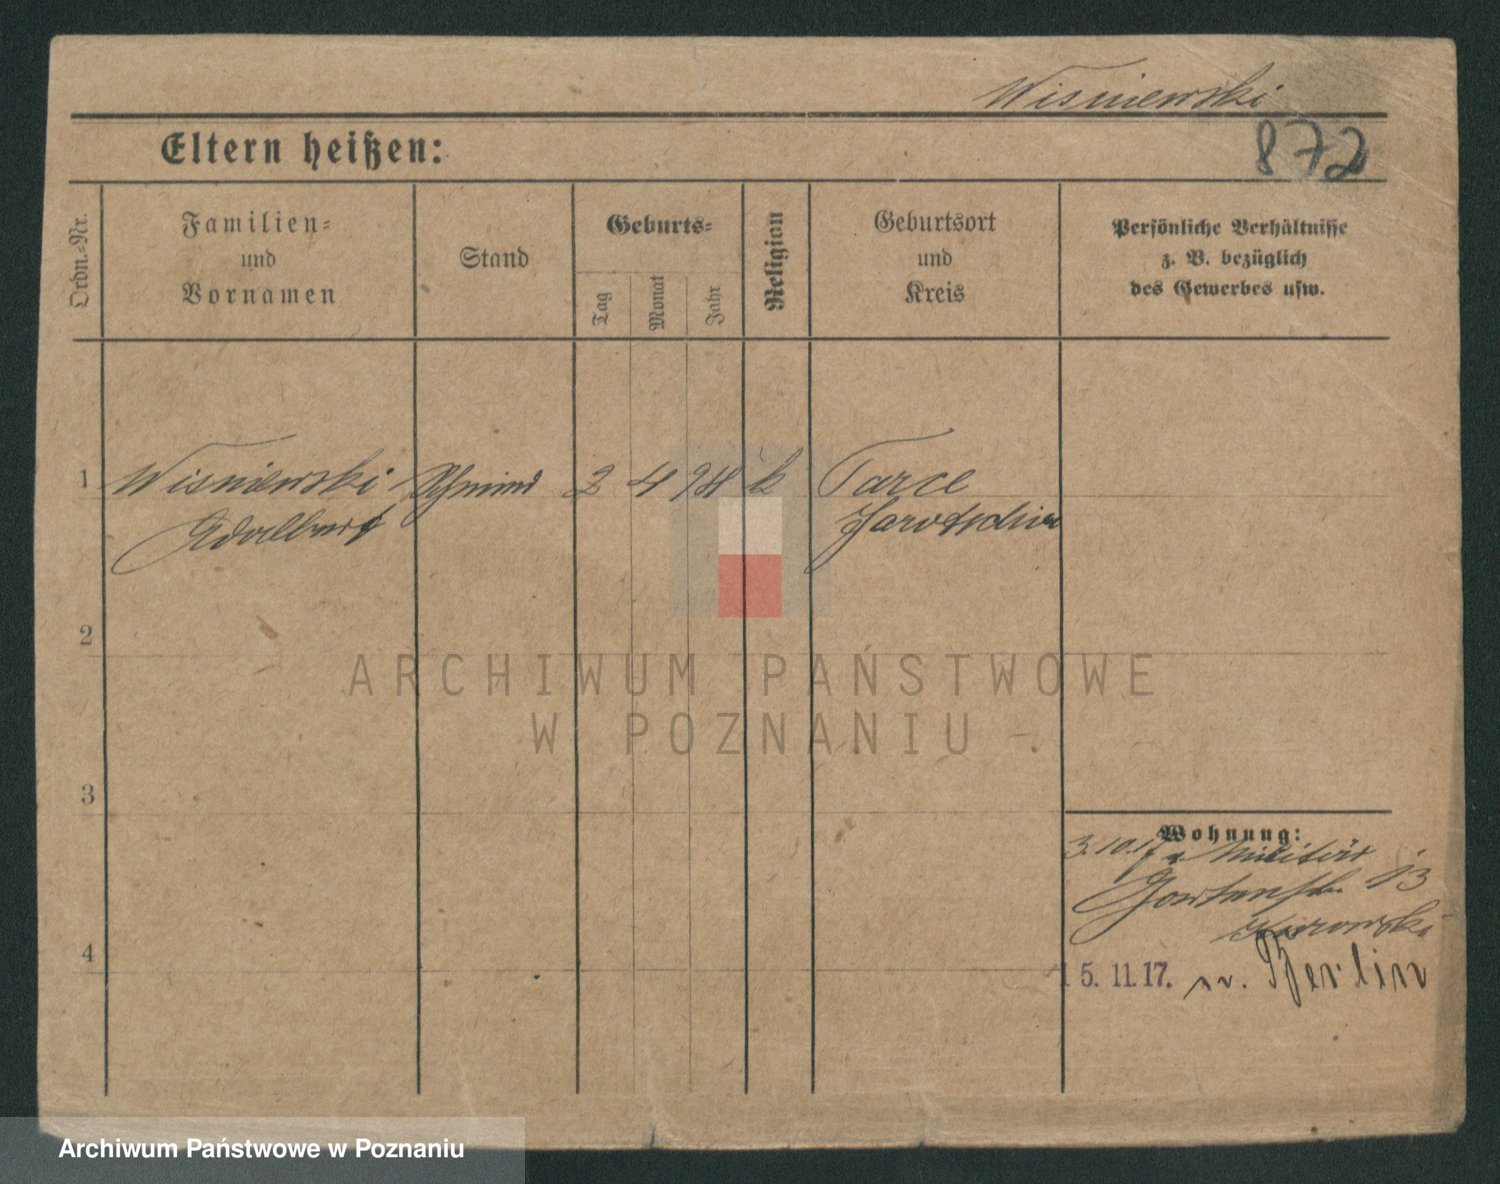 Wisniewski
872
Eltern heißen:
Ordn.-Nr.
Familien-
und
Vornamen
Stand
Geburts-
Tag
Monat
Jahr
Religion
Geburtsort
und
Kreis
Persönliche Verhältnisse
z. B. bezüglich
des Gewerbes usw.
1 Wisniewski Schmied 2 4 98 k Tarce
Adalbert Jarotschin
2
3
4
ARCHIWUM PAŃSTWOWE
W POZNANIU
Wohnung:
3.10.17 v Militär
Gartenstr. 13
15.11.17. n. Berlin
Archiwum Państwowe w Poznaniu